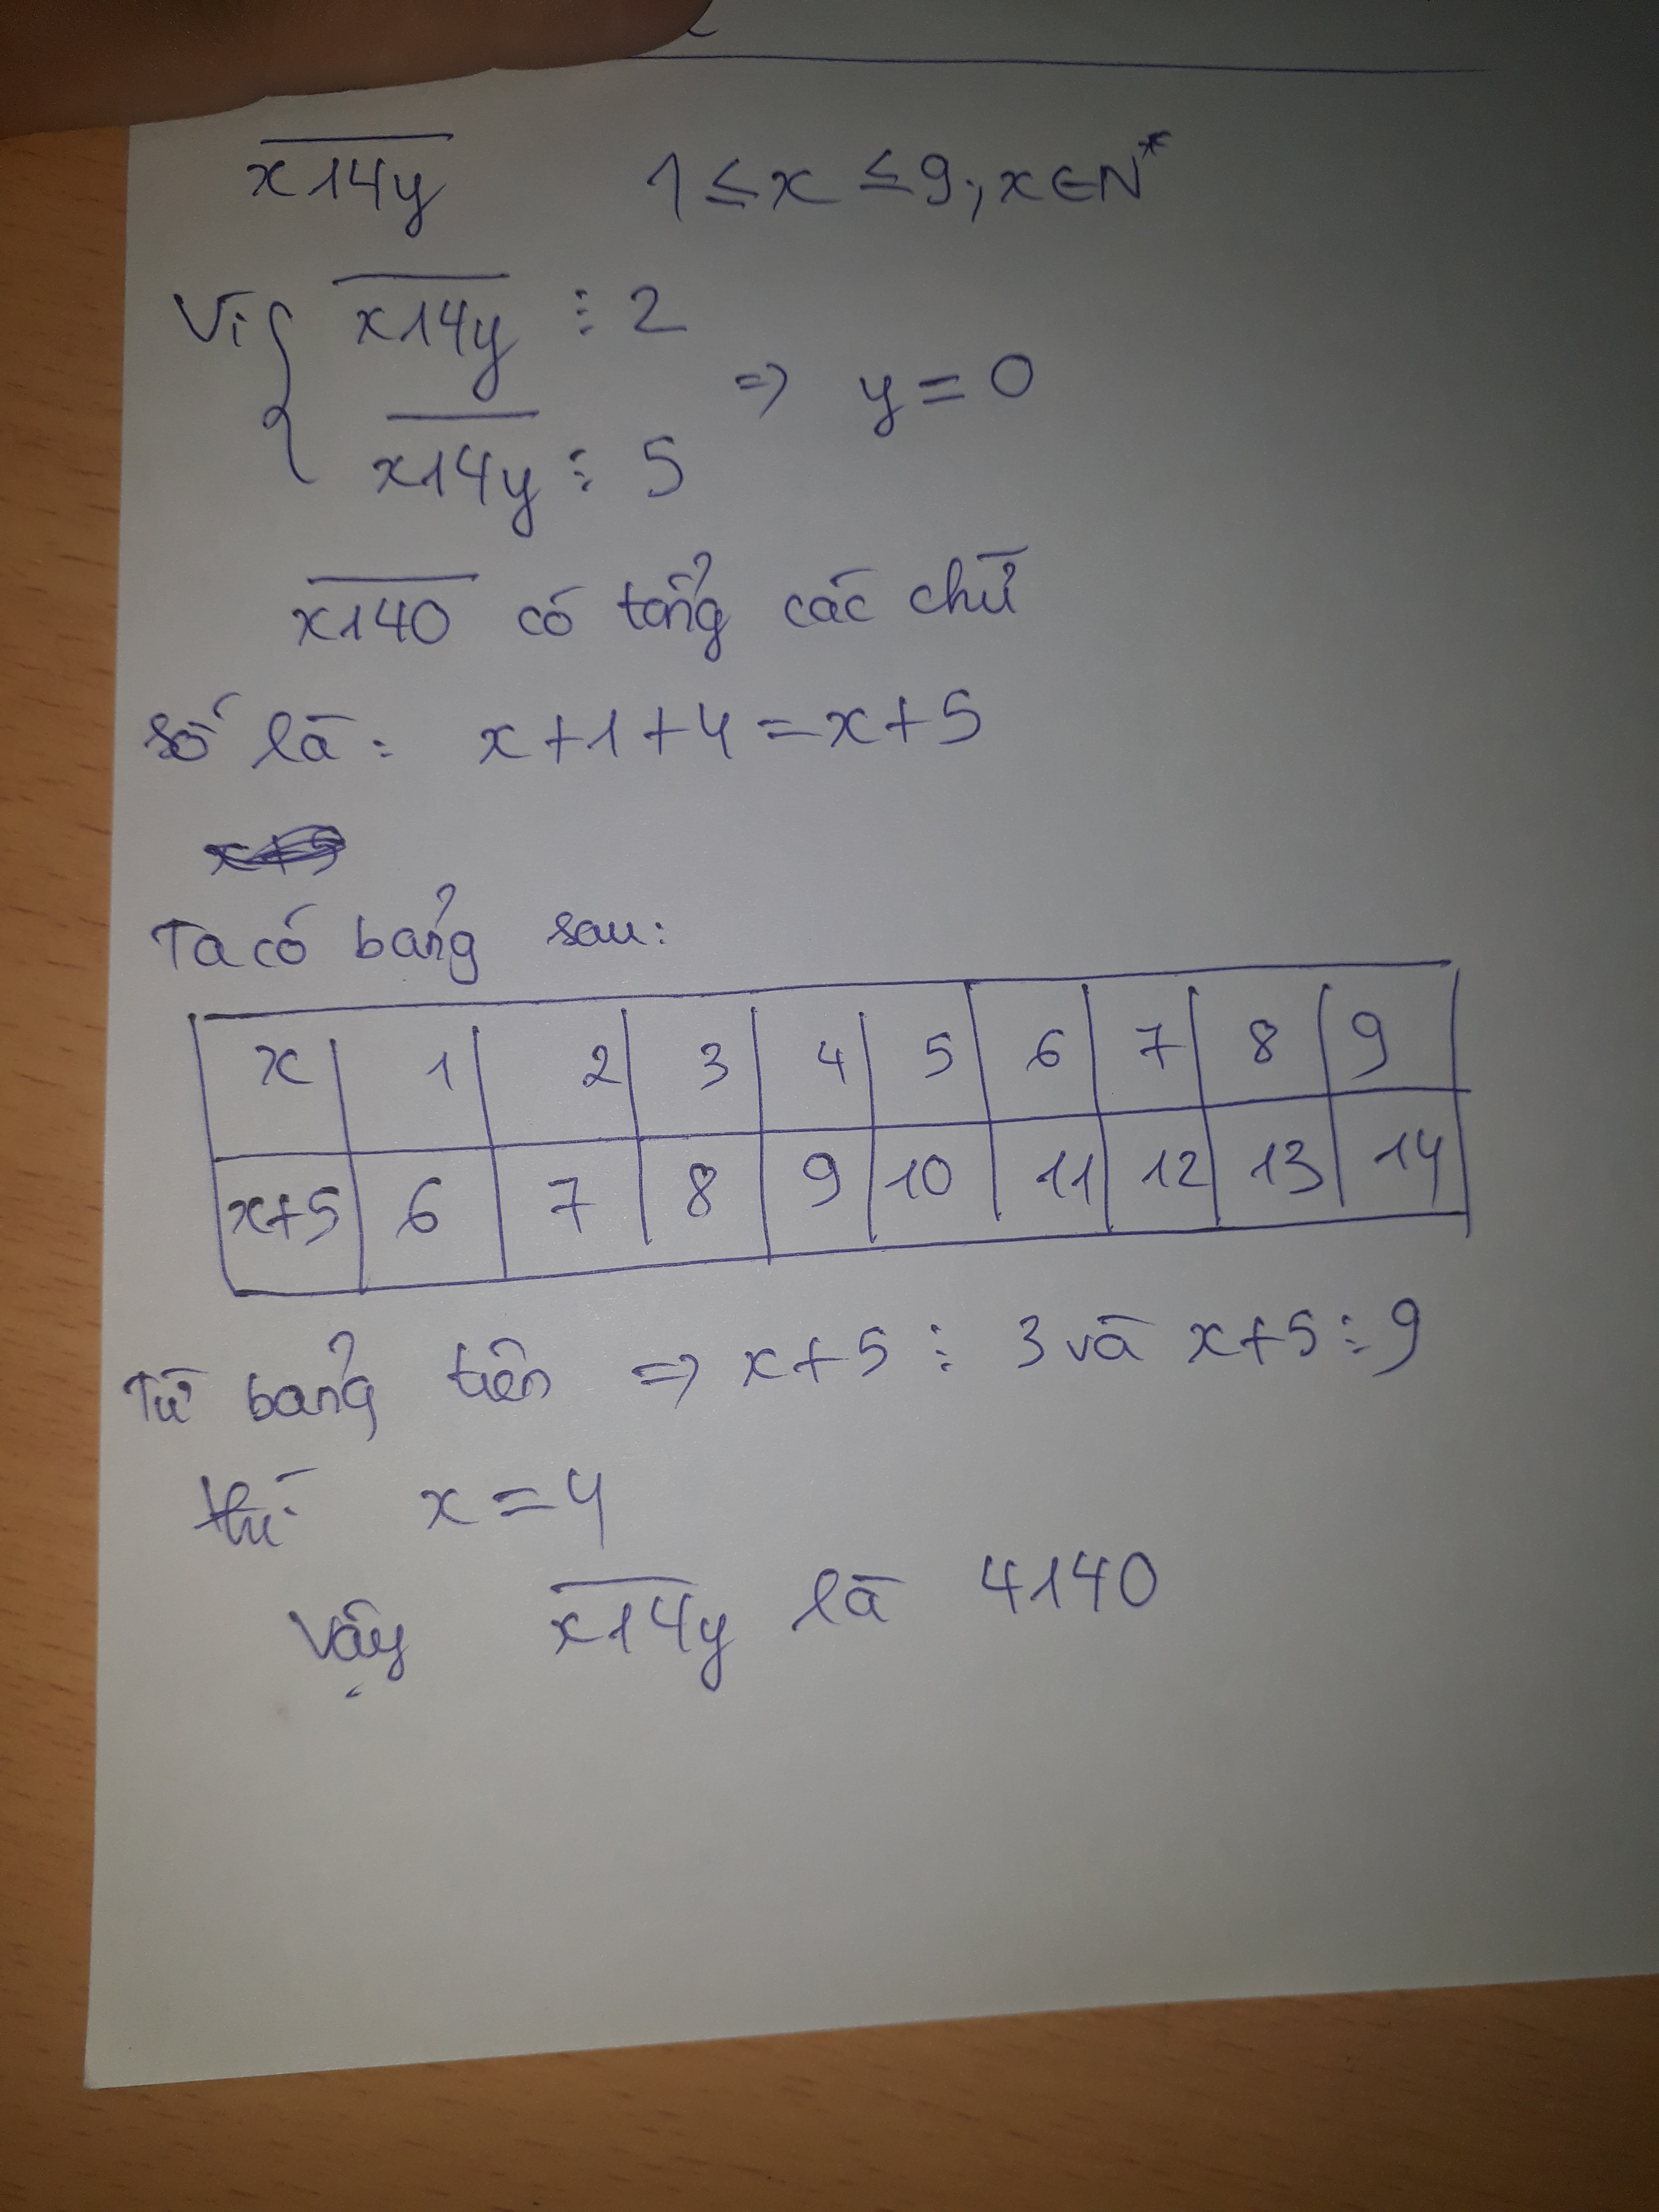 x14y 1≤x≤9; x∈N*
Vì { x14y ⋮ 2
⇒ y=0
x14y ⋮ 5
x140 có tổng các chữ
số là: x+1+4=x+5
Ta có bảng sau:
x 1 2 3 4 5 6 7 8 9
x+5 6 7 8 9 10 11 12 13 14
Từ bảng trên ⇒ x+5 ⋮ 3 và x+5 ⋮ 9
thì x=4
Vậy x14y là 4140